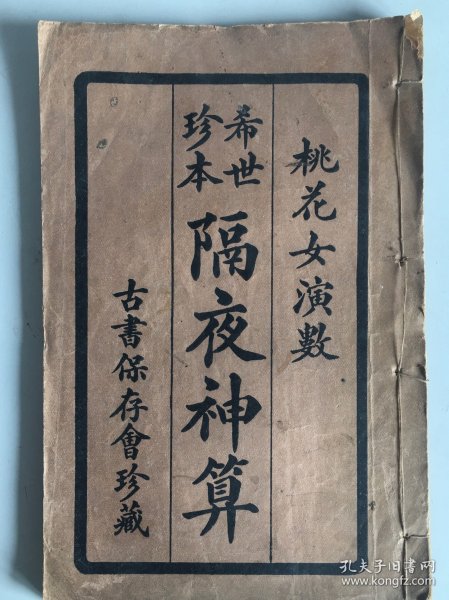 桃花女演數
希世
珍本
隔夜神算
古書保存會珍藏
孔夫子旧书网
www.kongfz.com